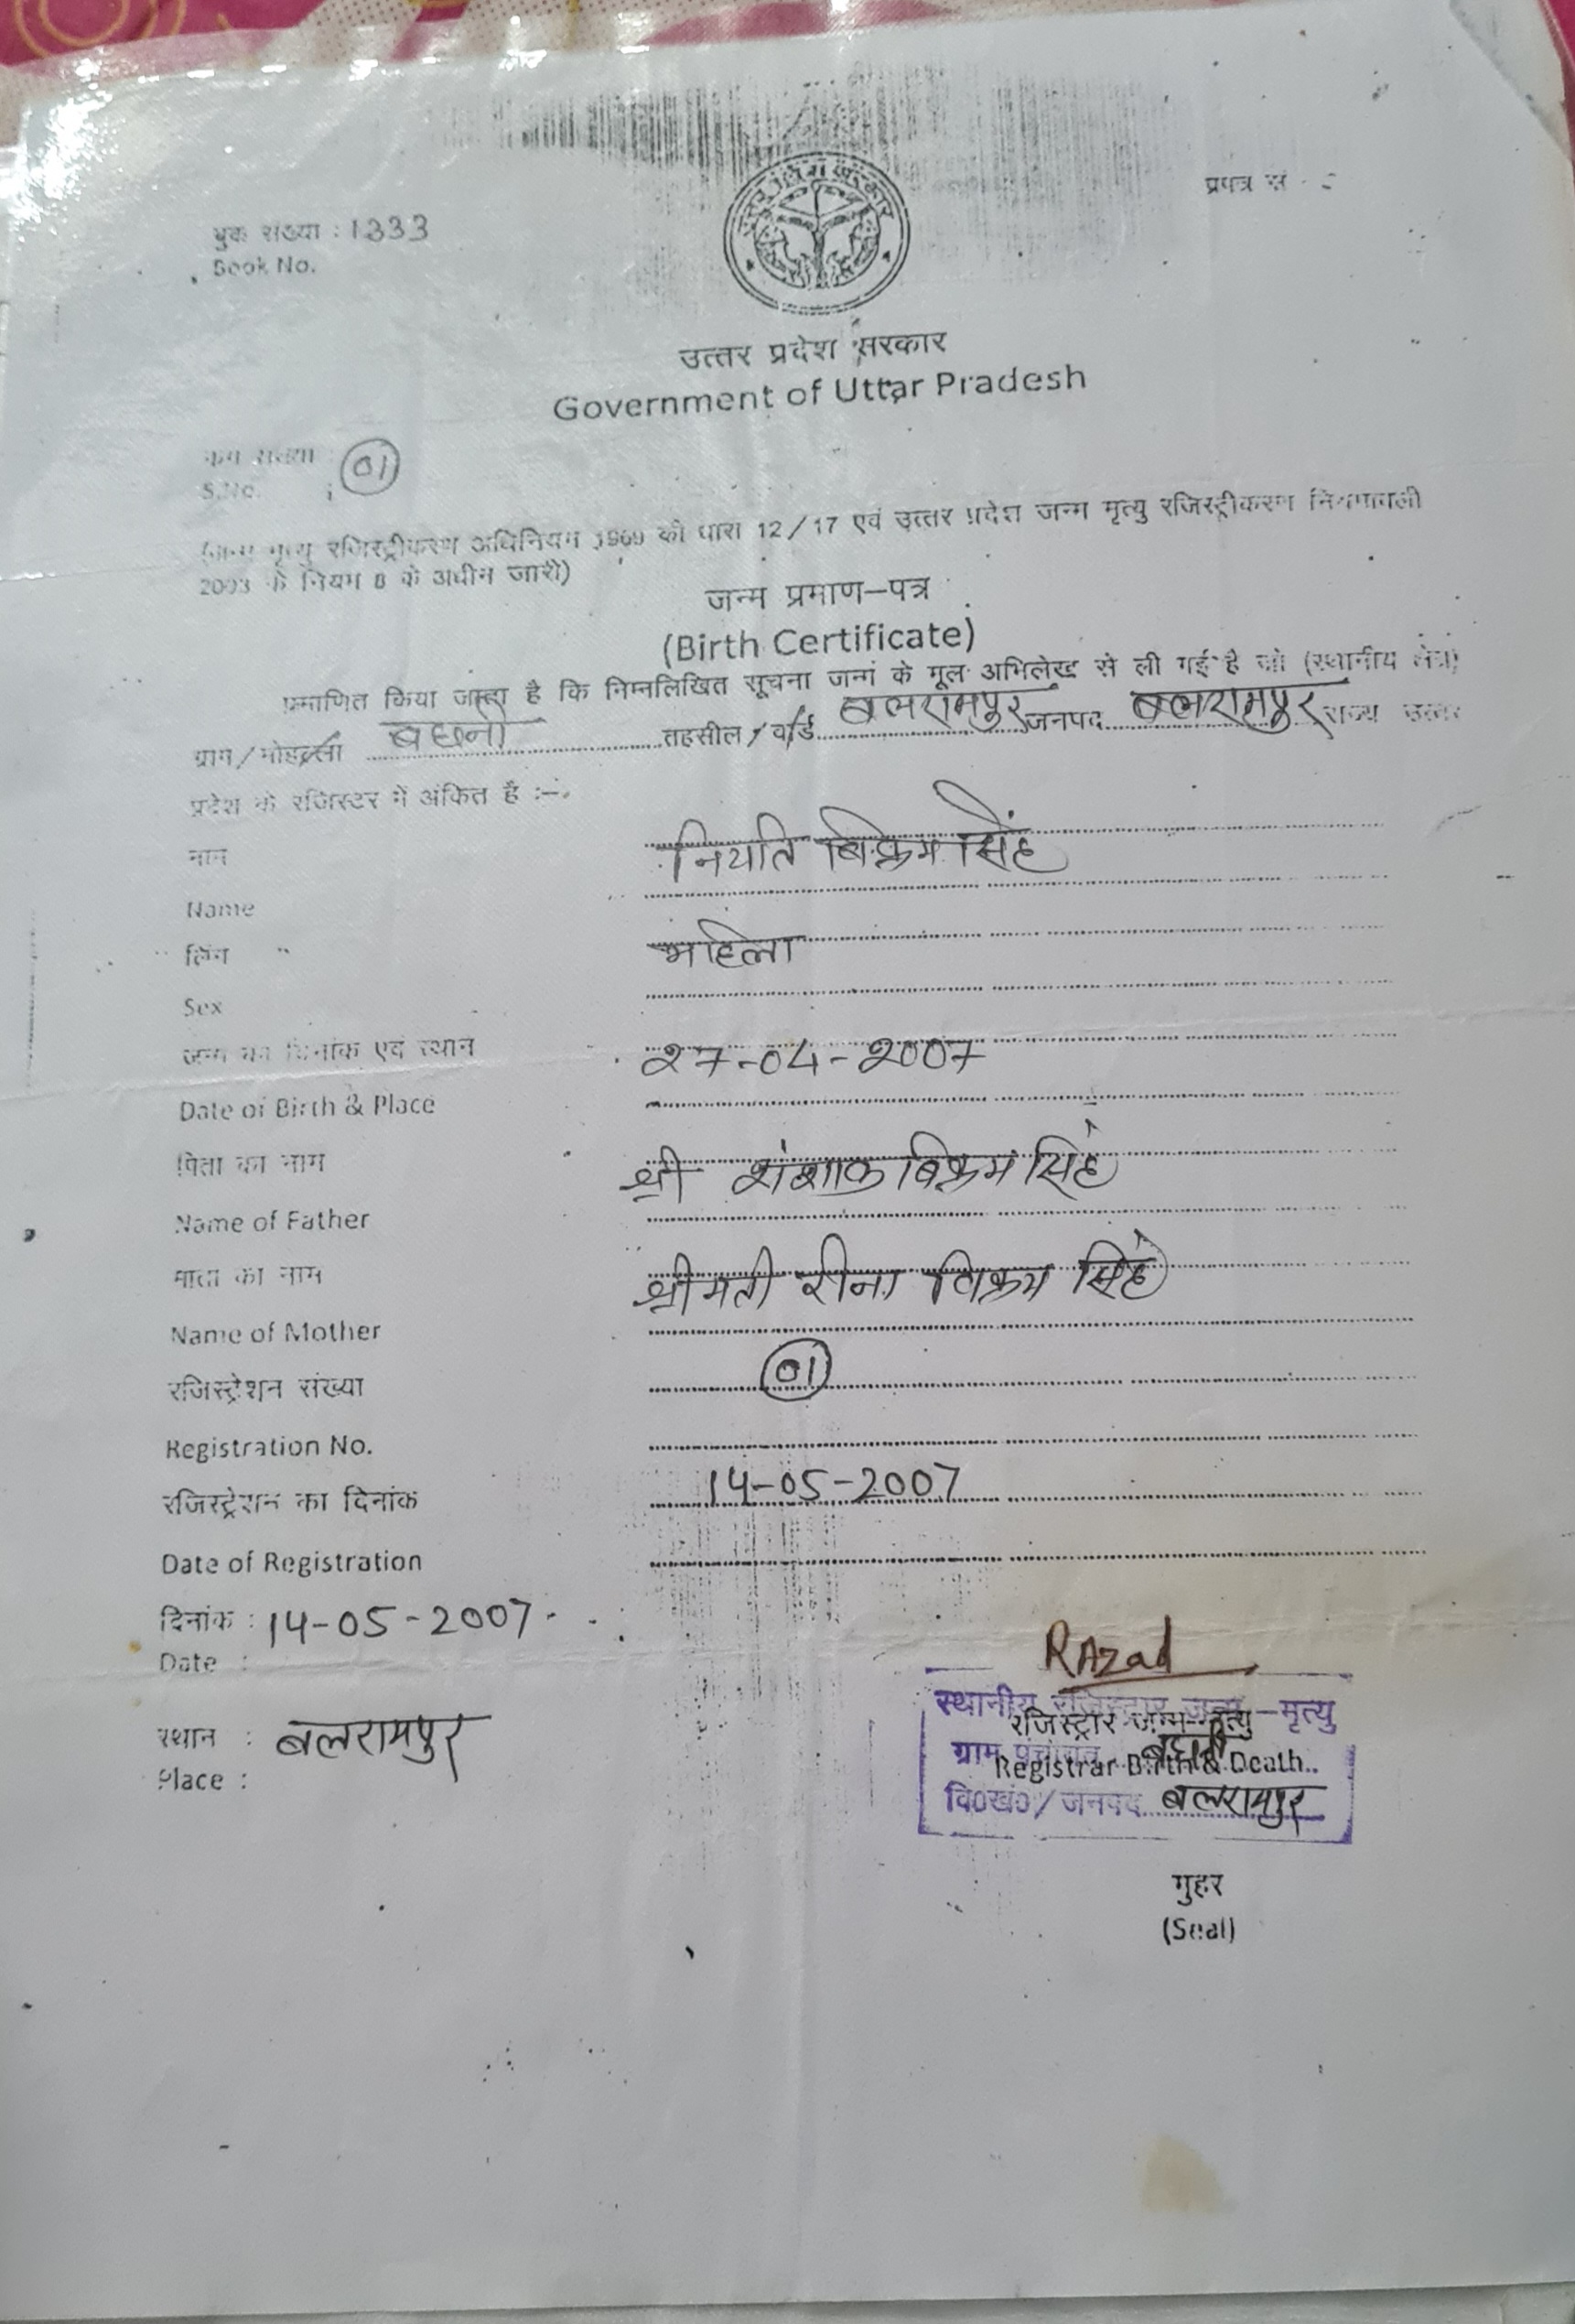 बुक संख्या : 1333
Book No.
प्रपत्र सं -
उत्तर प्रदेश सरकार
Government of Uttar Pradesh
क्रम संख्या :
S.No. : 01
(जन्म मृत्यु रजिस्ट्रीकरण अधिनियम 1969 की धारा 12/17 एवं उत्तर प्रदेश जन्म मृत्यु रजिस्ट्रीकरण नियमावली
2003 के नियम 8 के अधीन जारी)
जन्म प्रमाण-पत्र
(Birth Certificate)
प्रमाणित किया जाता है कि निम्नलिखित सूचना जन्म के मूल अभिलेख से ली गई है जो (स्थानीय क्षेत्र)
ग्राम/मोहल्ला बछनी तहसील/वार्ड बलरामपुर जनपद बलरामपुर राज्य उत्तर
प्रदेश के रजिस्टर में अंकित है :-
नाम नियति बिक्रम सिंह
Name
लिंग महिला
Sex
जन्म का दिनांक एवं स्थान 27-04-2007
Date of Birth & Place
पिता का नाम श्री शंशाक बिक्रम सिंह
Name of Father
माता का नाम श्रीमती रीना विक्रम सिंह
Name of Mother
रजिस्ट्रेशन संख्या 01
Registration No.
रजिस्ट्रेशन का दिनांक 14-05-2007
Date of Registration
दिनांक : 14-05-2007
Date :
RAzad
स्थानीय रजिस्ट्रार जन्म-मृत्यु
रजिस्ट्रार जन्म-मृत्यु
स्थान : बलरामपुर
ग्राम पंचायत बछनी
Registrar Birth & Death
Place :
वि०खं०/जनपद बलरामपुर
मुहर
(Seal)